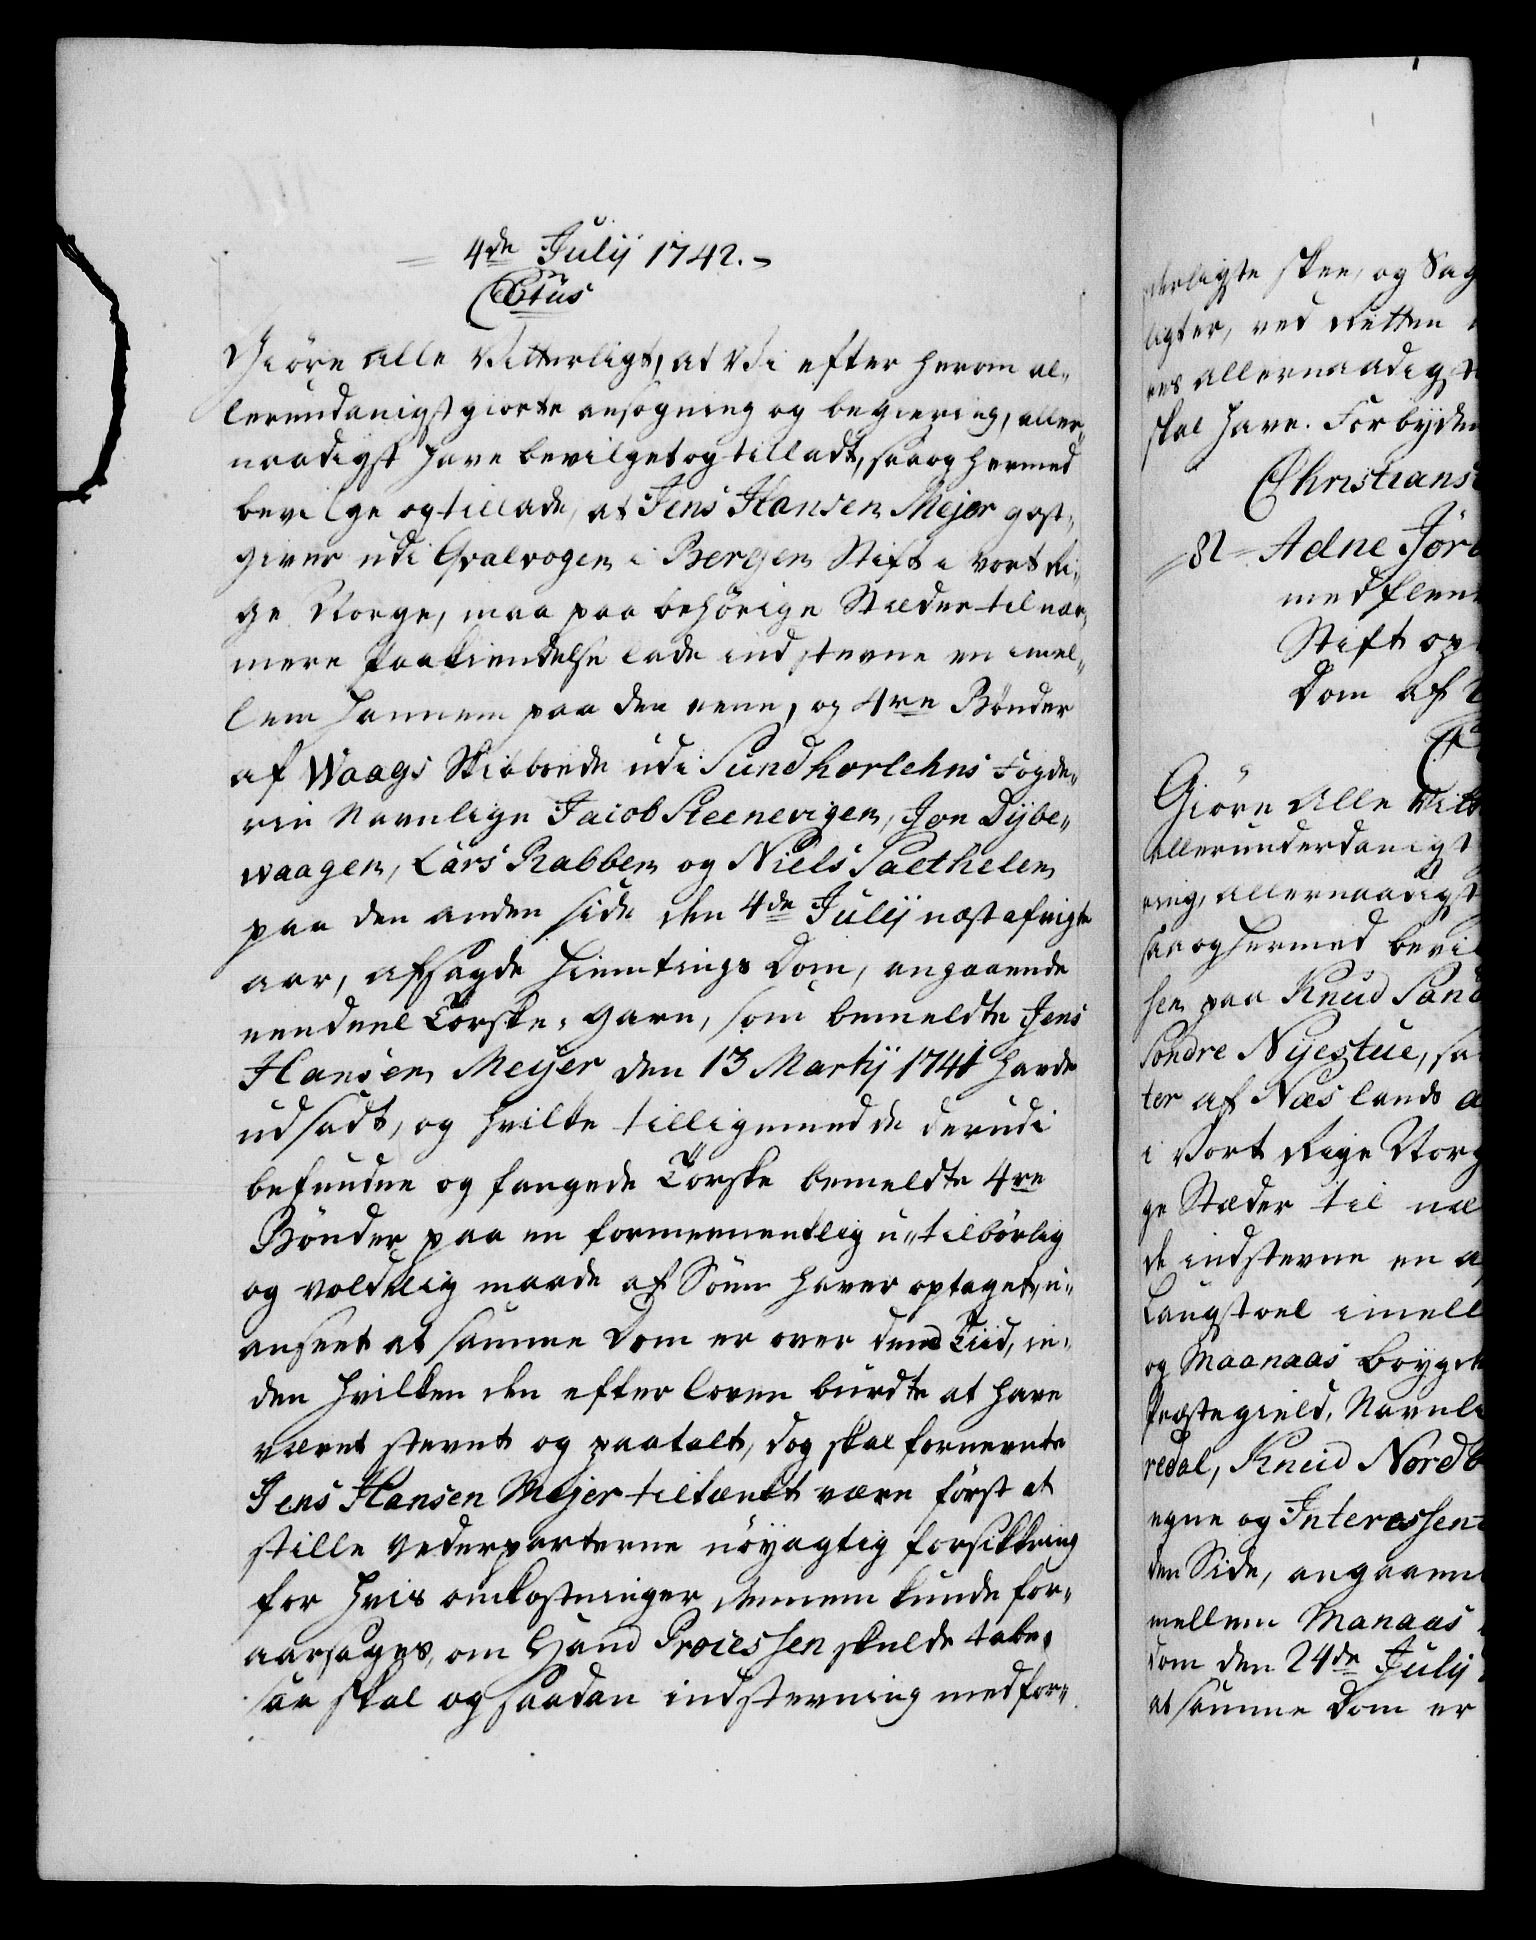 4de Julij 1742.
C6tus
Giöre alle Vitterligt, at Vi efter herom al-
lerundanigst giorte ansøgning og begiering, aller-
naadigst have bevilget og tilladt, saa og hermed
bevilge og tillade, at Jens Hansen Mejer gast-
giver udi Qvalvogen i Bergen Stift i vort Ri-
ge Norge, maa paa behörige Stæder til nær-
mere Paakiendelse lade indstevne en imel-
lem hannem paa den eene, og 4re Bönder
af Waags Skibrede udi Sundhorlehns Fogde-
rie Navnlige Jacob Steenevigen, Jon Dybe-
waagen, Lars Rabben og Niels Saethelen
paa den anden side den 4de Julij næst afvigte
aar, afsagde Hiemtings Dom, angaaende
eendeel Torske-garn, som bemeldte Jens
Hansen Meyer den 13 Martij 1741 havde
udsadt, og hvilke tilligemed de derudi
befundne og fangede Torske bemeldte 4re
Bönder paa en formeenentlig u-tilbörlig
og voldelig maade af Söen haver optaget, u-
anseet at samme Dom er over dend Tiid, in-
den hvilken den efter loven burdte at have
været stevnt og paatalt, dog skal fornevnte
Jens Hansen Mejer tiltænkt være först at
stille vederparterne nöyagtig forsikkring
for hvis omkostninger dennem kunde for-
aarsages, om hand Processen skulde tabe,
saa skal og saadan indstevning med for-
derligste skee, og Sag
ligter, ved Retten
es allernaadigst
skal have. Forbyden
Christians
81 Adne Jör
med fleere
Stift op
Dom af
Giöre Alle Vitt
Allerunderdanigst
ring, allernaadigst
saa og hermed bevil
sen paa Knud Sand
Sondre Nyestue, sa
ter af Næs lands
i Vort Rige Norg
ge Stæder til næ
de indstevne en a
Langstoel imell
og Maanaas bøygde
Præstegield, Navnl
redal, Knud Nordb
egne og Interessen
den Side, angaaen
mellem Manaas
Dom den 24de Julij
at samme Dom er